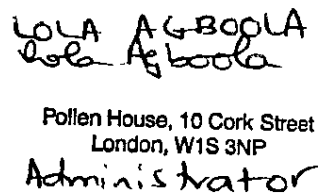 LOLA AGBOOLA
Lola Agboola
Pollen House, 10 Cork Street
London, W1S 3NP
Administrator